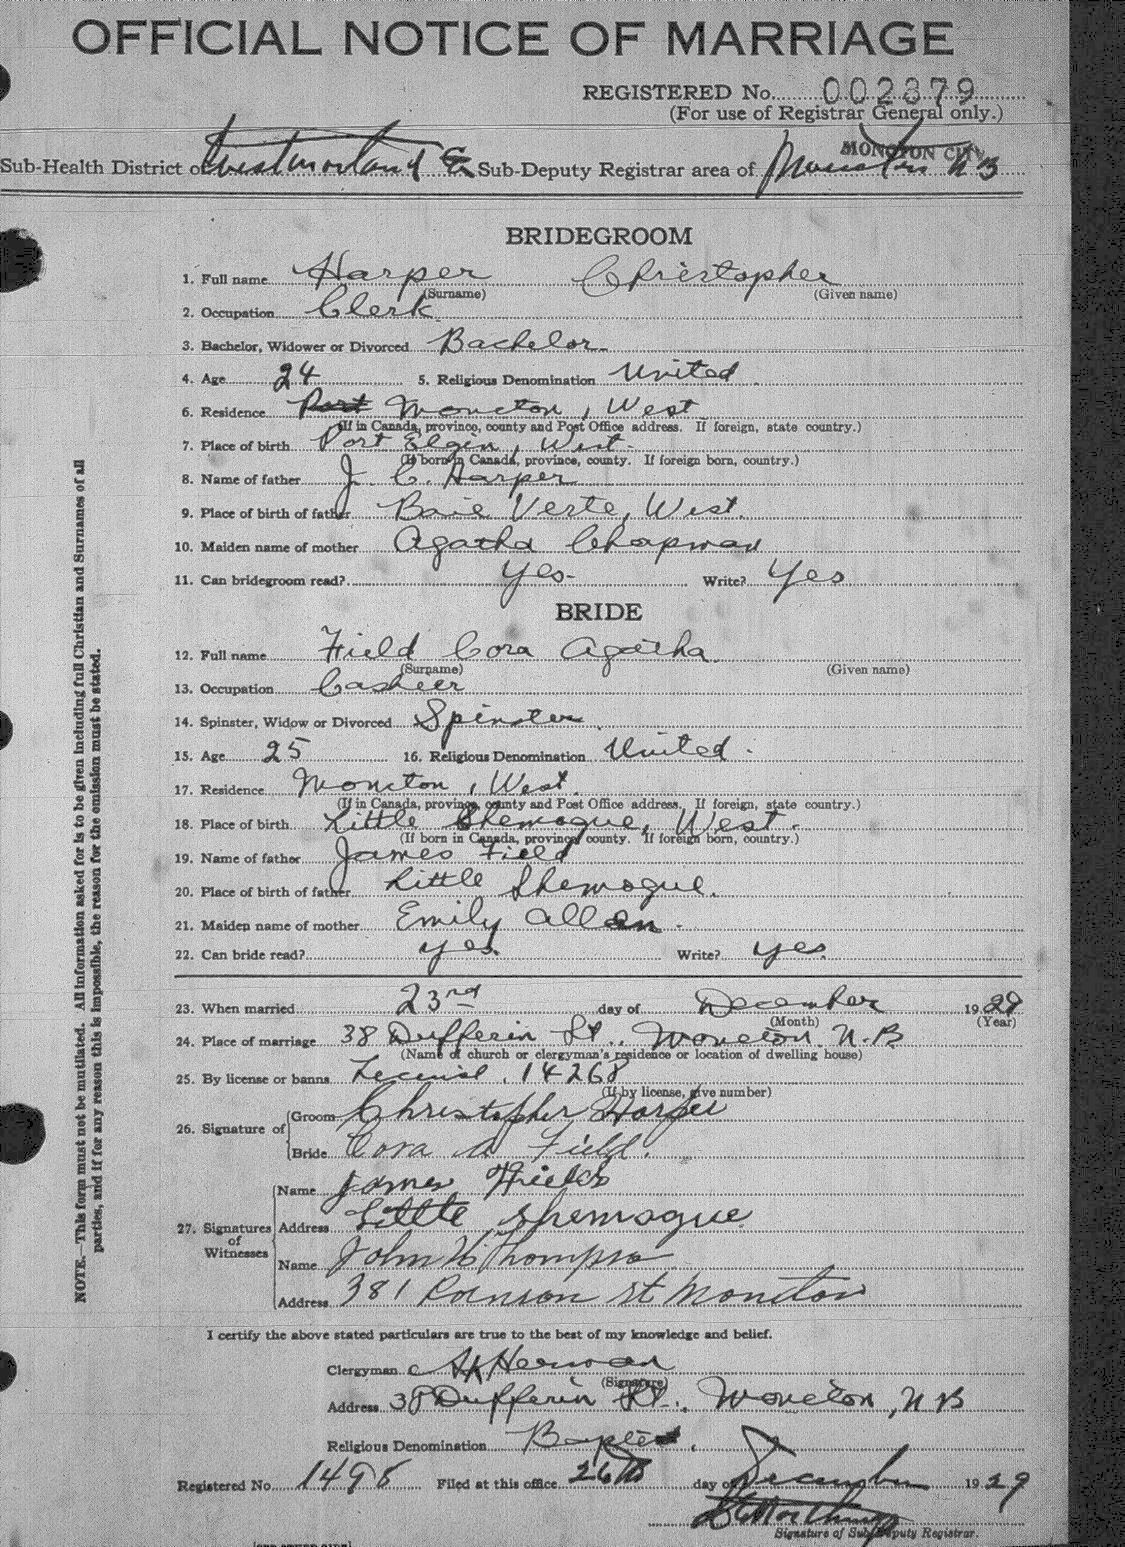 OFFICIAL NOTICE OF MARRIAGE
REGISTERED No. 002879
(For use of Registrar General only.)
MONCTON CITY
Sub-Health District of Westmorland Co Sub-Deputy Registrar area of Moncton NB
BRIDEGROOM
1. Full name Harper Christopher
(Surname) (Given name)
2. Occupation Clerk
3. Bachelor, Widower or Divorced Bachelor
4. Age 24 5. Religious Denomination United
6. Residence Port Moncton, West
(If in Canada, province, county and Post Office address. If foreign, state country.)
7. Place of birth Port Elgin, West.
(If born in Canada, province, county. If foreign born, country.)
8. Name of father J. C. Harper
9. Place of birth of father Baie Verte, West.
10. Maiden name of mother Agatha Chapman
11. Can bridegroom read? Yes- Write? Yes
BRIDE
12. Full name Field Cora Agatha
(Surname) (Given name)
13. Occupation Casheer
14. Spinster, Widow or Divorced Spinster
15. Age 25 16. Religious Denomination United.
17. Residence Moncton, West.
(If in Canada, province, county and Post Office address. If foreign, state country.)
18. Place of birth Little Shemogue, West.
(If born in Canada, province, county. If foreign born, country.)
19. Name of father James Field
20. Place of birth of father Little Shemogue.
21. Maiden name of mother Emily Allan.
22. Can bride read? Yes. Write? Yes.
23. When married 23rd day of December 1929
(Month) (Year)
24. Place of marriage 38 Dufferin St., Moncton, N.B
(Name of church or clergyman's residence or location of dwelling house)
25. By license or banns License. 14268
(If by license, give number)
26. Signature of Groom Christopher Harper
Bride Cora A Field.
27. Signatures of Witnesses Name James Fields
Address Little Shemogue
Name John H Thompson
Address 381 St Moncton
I certify the above stated particulars are true to the best of my knowledge and belief.
Clergyman Herman
(Signature)
Address 38 Dufferin St., Moncton, N B
Religious Denomination Baptist.
Registered No. 1498 Filed at this office 26th day of December 1929
Signature of Sub-Deputy Registrar.
NOTE.—This form must not be mutilated. All information asked for is to be given including full Christian and Surnames of all
parties, and if for any reason this is impossible, the reason for the omission must be stated.